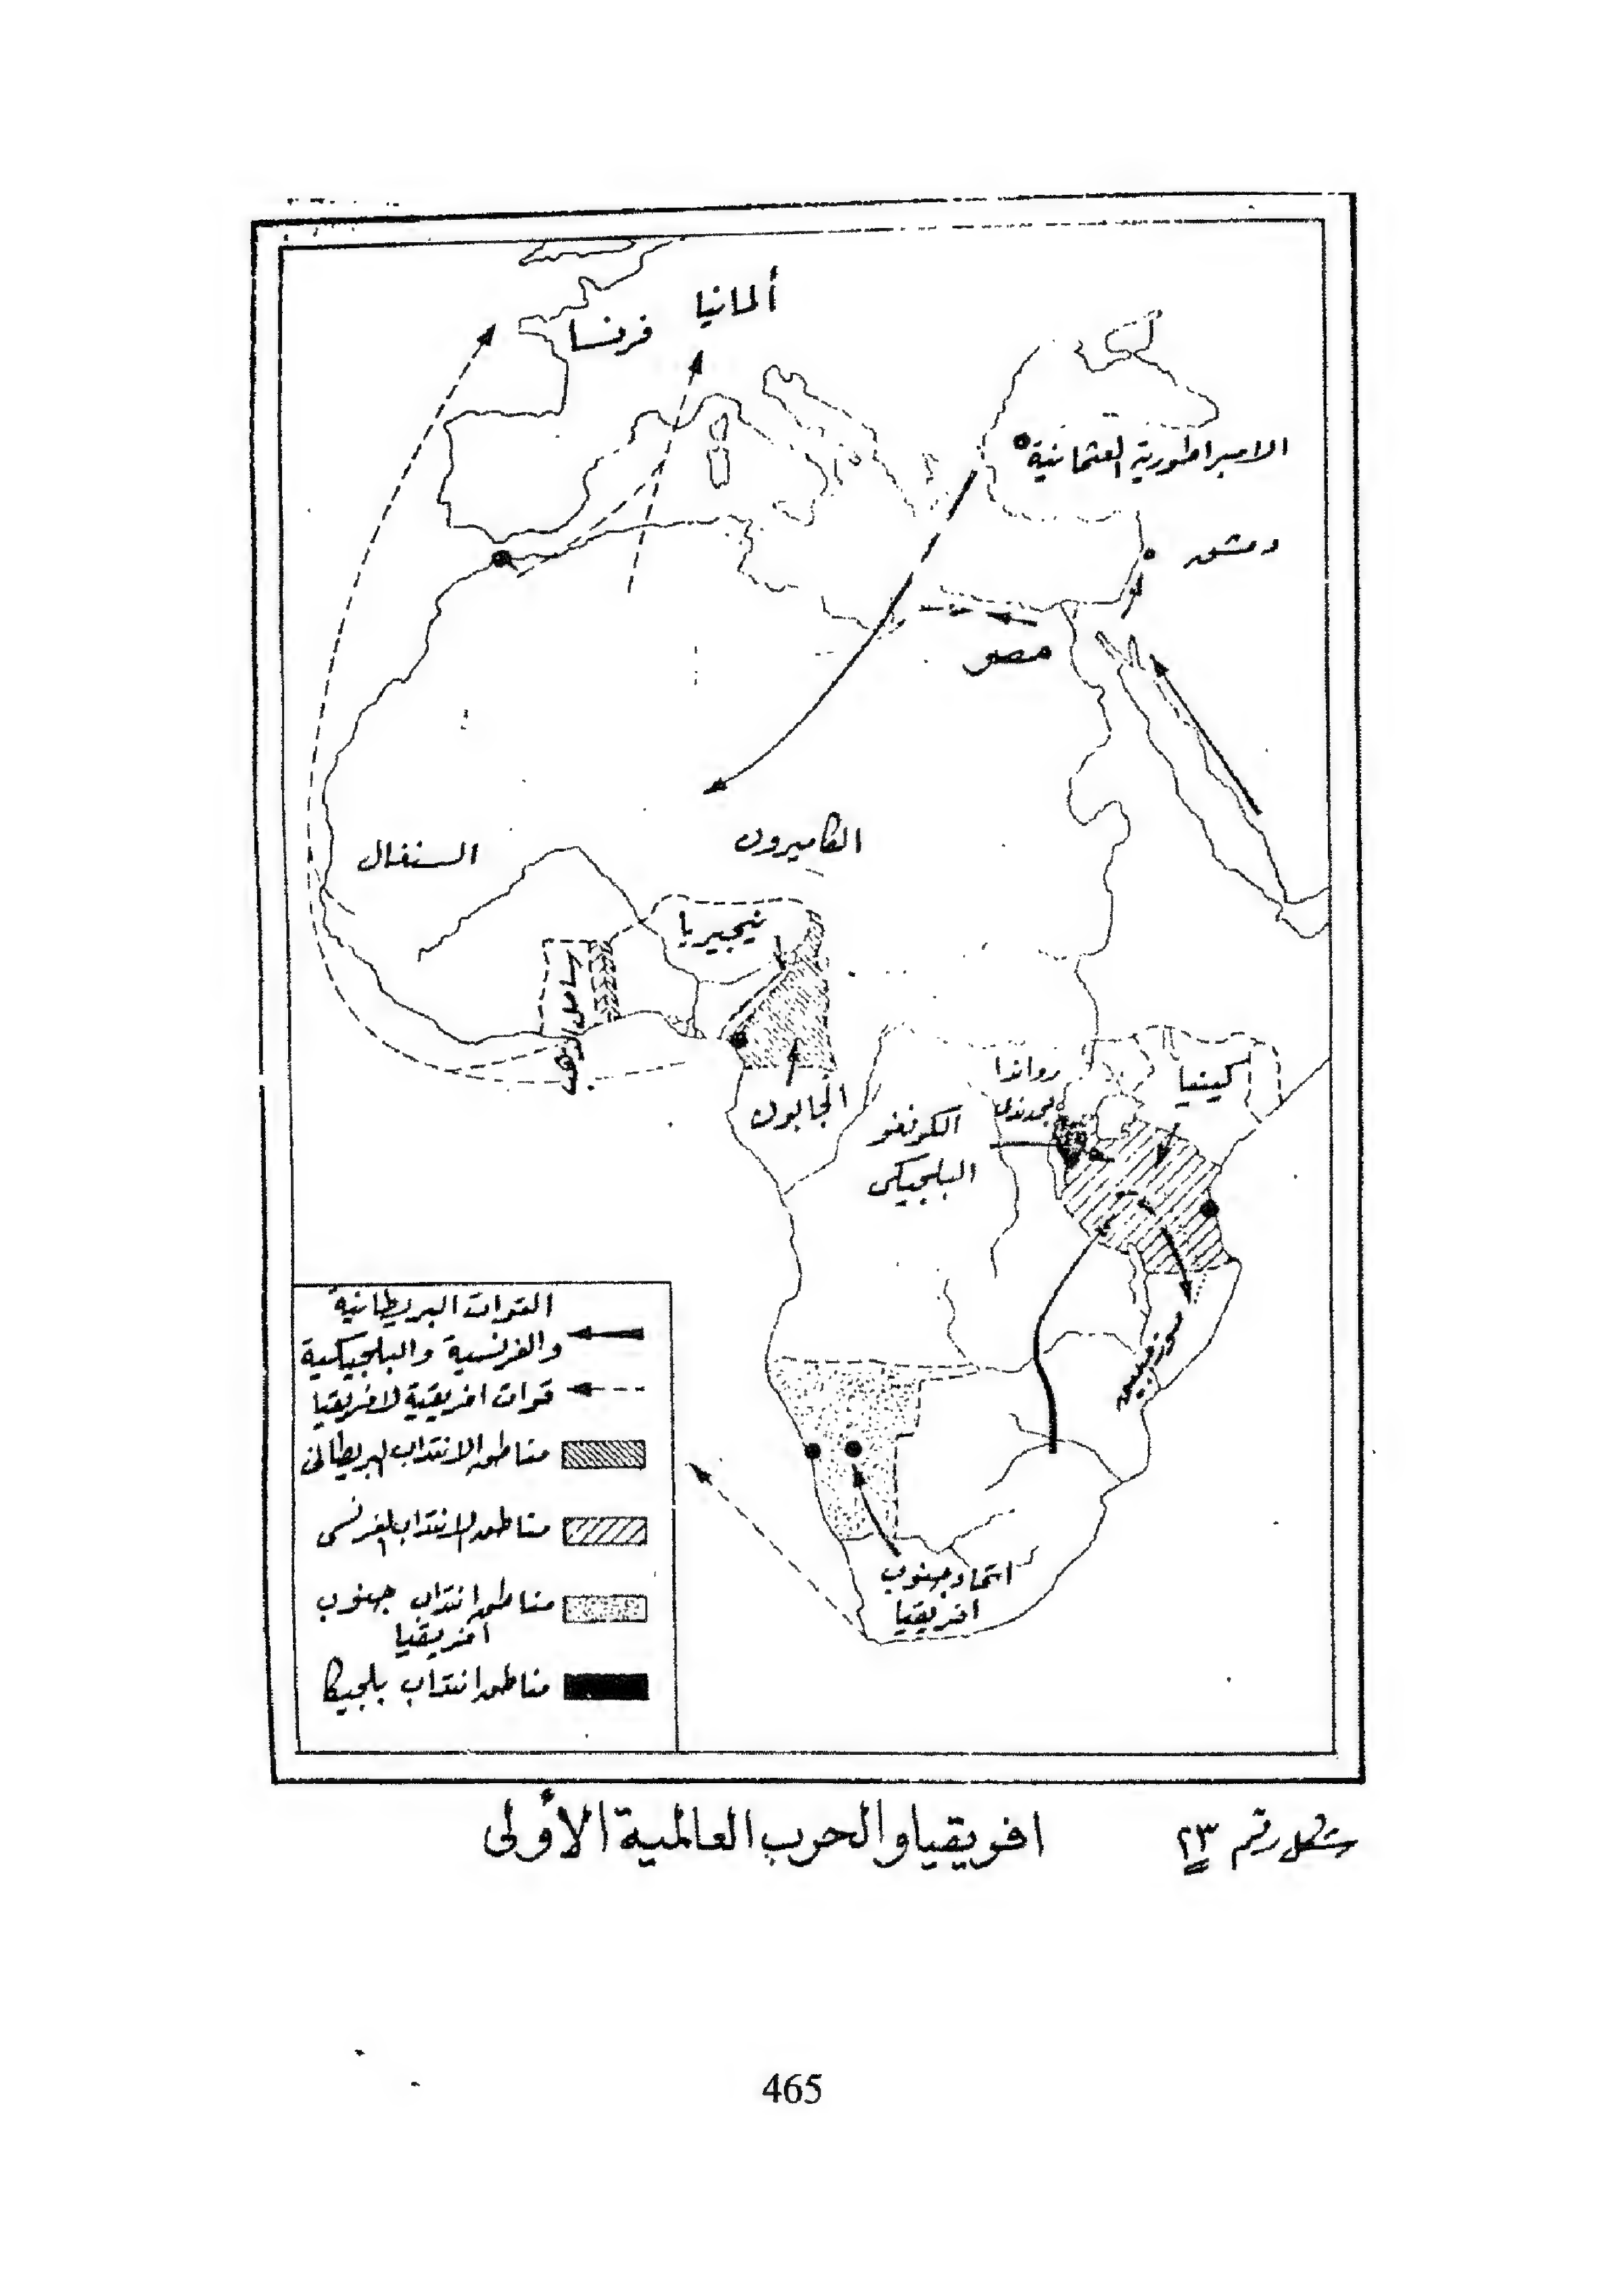 ألمانيا
فرنسا
الامبراطورية العثمانية
دمشق
مصر
السنغال
الكاميرون
نيجيريا
ساحل الذهب
الجابون
الكونغو
البلجيكى
رواندا
كينيا
اتحاد جنوب
افريقيا
القوات البريطانية
والفرنسية والبلجيكية
قوات افريقية لافريقيا
مناطق الانتداب البريطانى
مناطق الانتداب الفرنسى
مناطق انتداب جنوب
افريقيا
مناطق انتداب بلجيكا
شكل رقم ٢٣
افريقيا والحرب العالمية الأولى
465